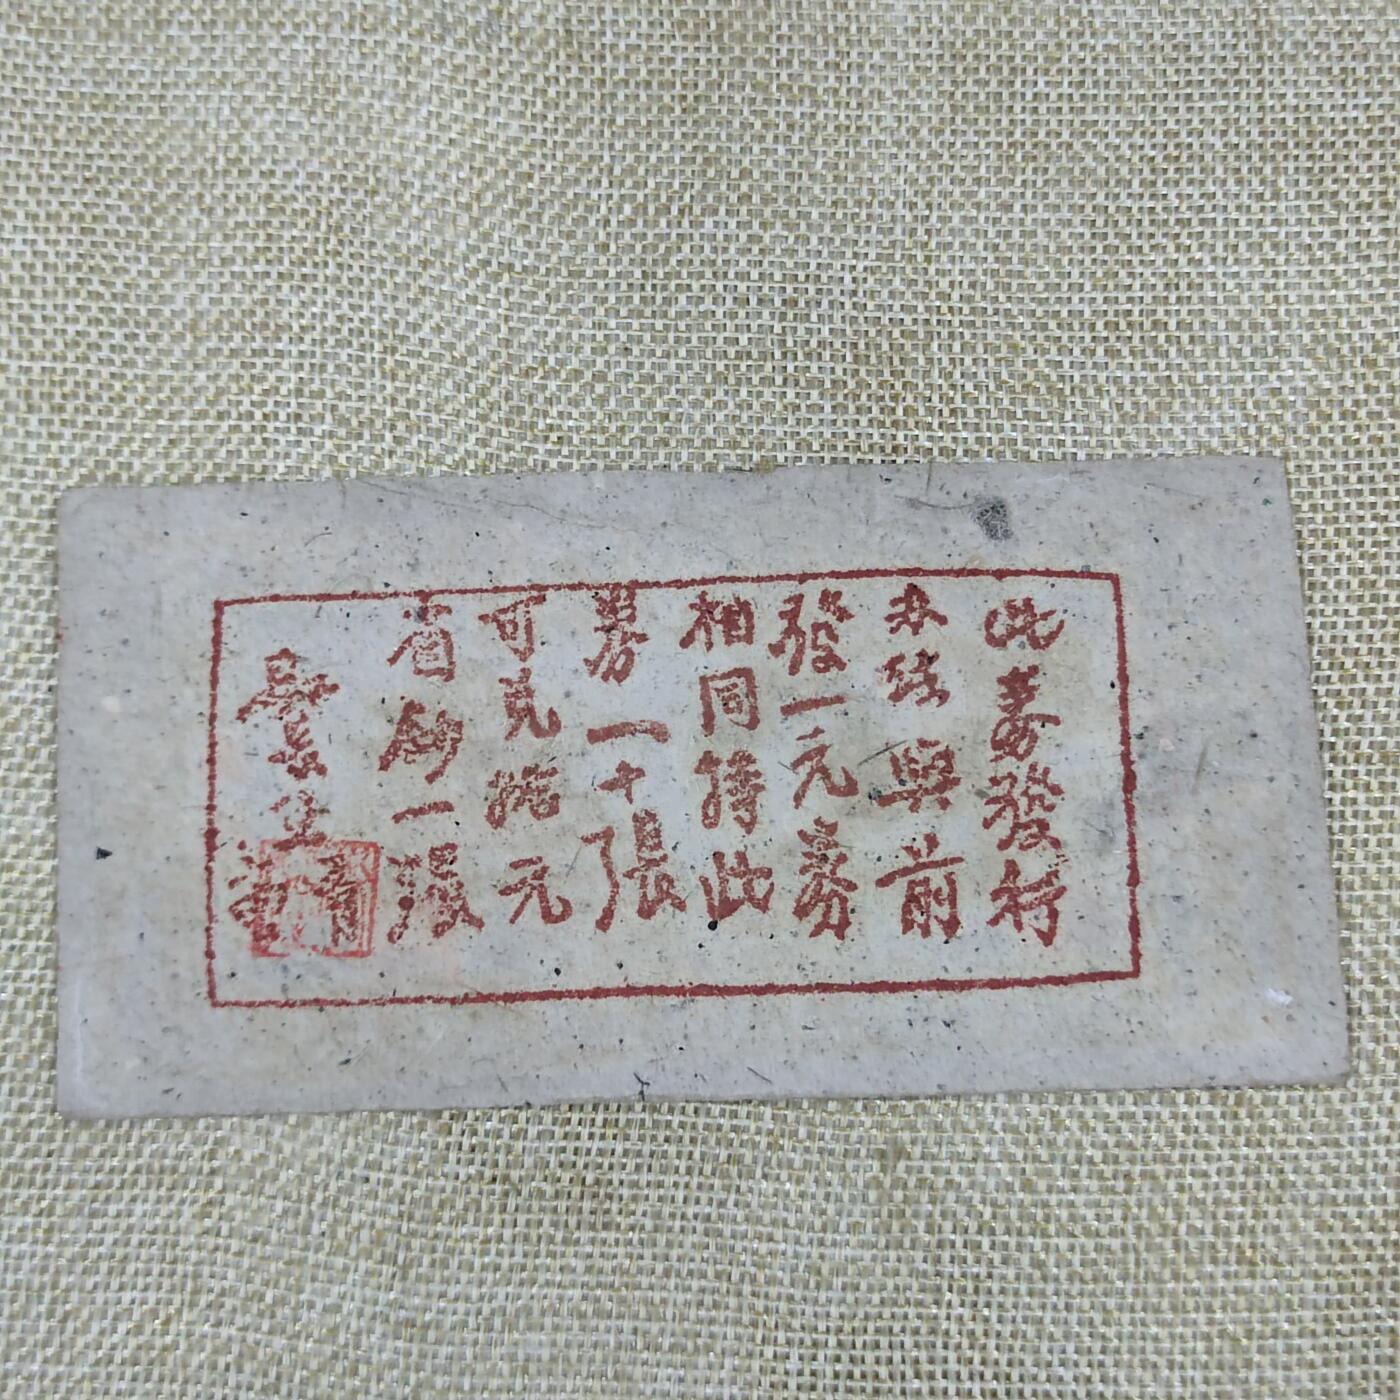 此券發行
办法與前
發一元券
相同持此
券一十張
可兌拾元
省鈔一張